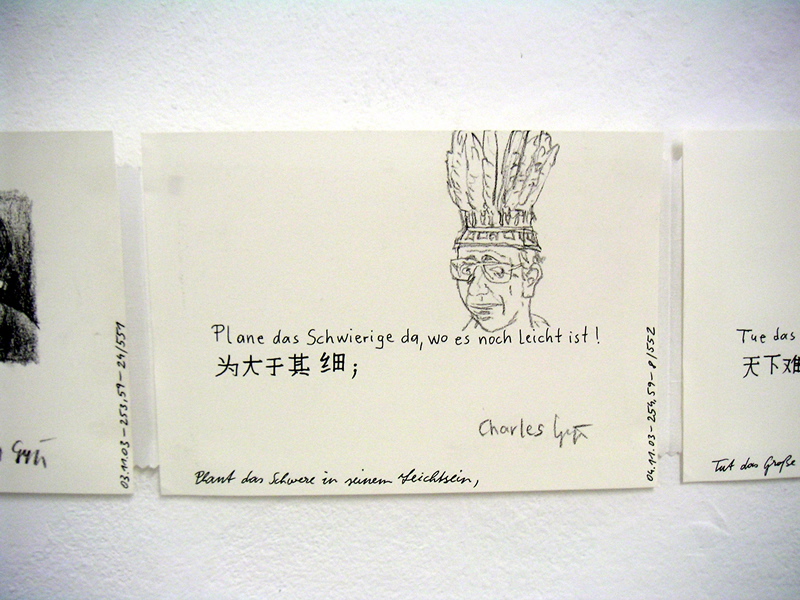 Plane das Schwierige da, wo es noch leicht ist!
为大于其细;
Charles
Plant das Schwere in seinem Leichtsein,
04.11.03-254,59-8/552
03.11.03-253,59-24/551
Tue das
天下难
Tut das Große